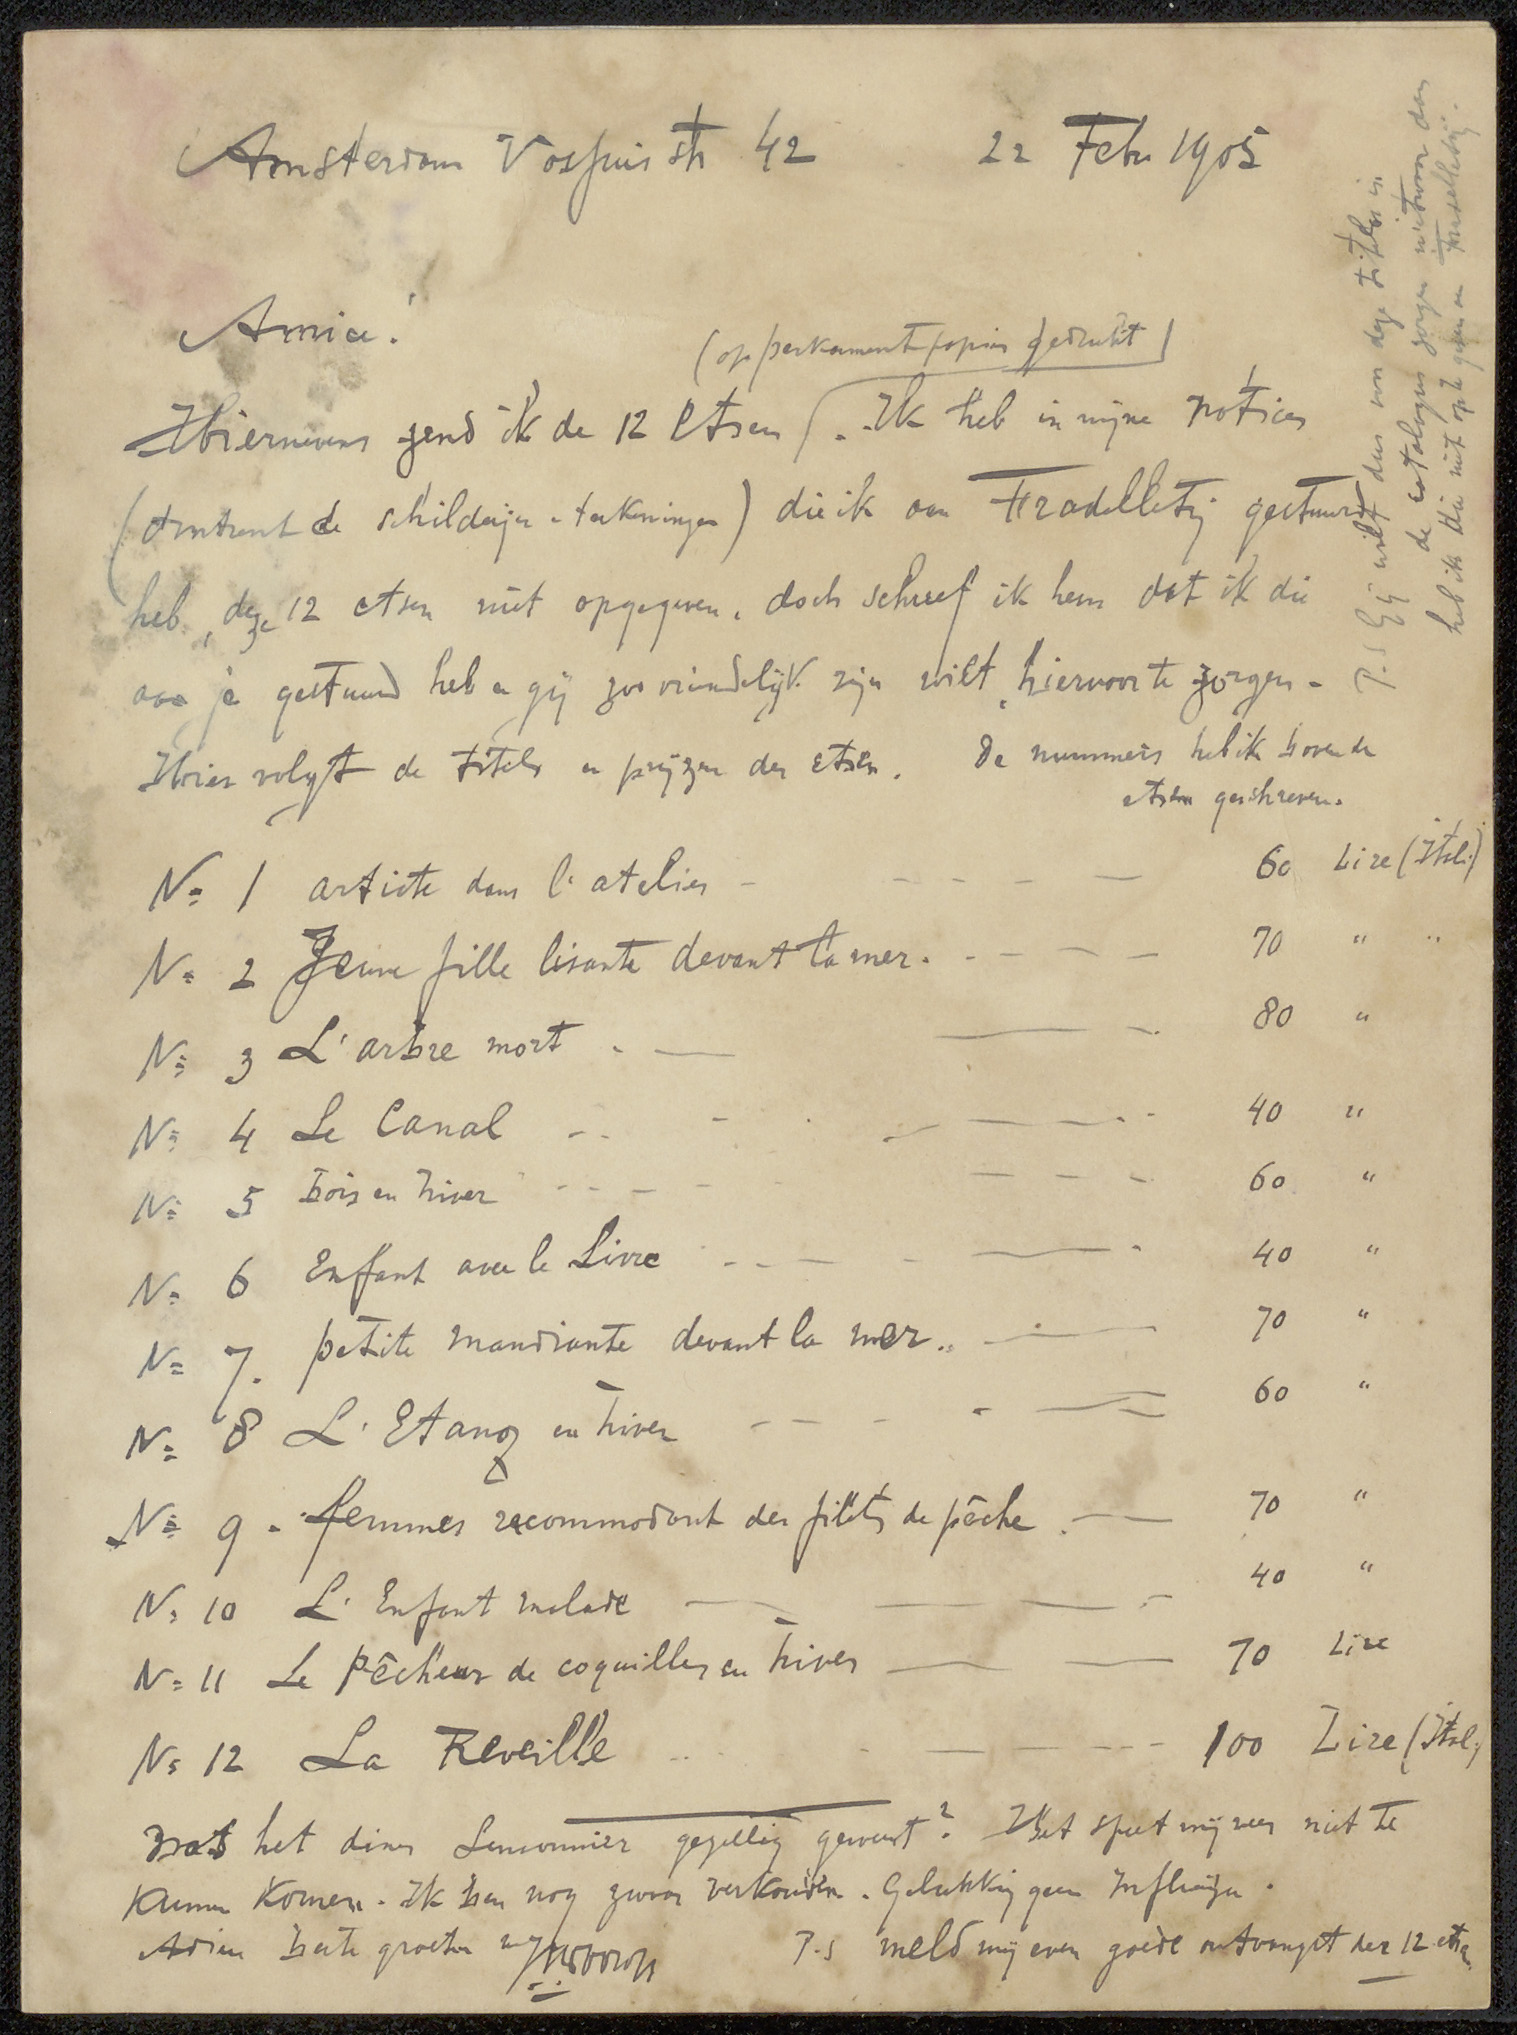 Amsterdam Vossiusstr 42 22 Febr 1905
Amice!
(op perkament papier gedrukt)
Hiernevens zend ik de 12 Etsen . Ik heb in mijne notices
(omtrent de schilderijen & teekeningen) die ik aan Fradelletij gestuurd
heb, deze 12 etsen niet opgegeven, doch schreef ik hem dat ik die
aan je gestuurd heb en gij zoo vriendelijk zijn wilt, hiervoor te zorgen.
Hier volgt de titels en prijzen der etsen. De nummers heb ik boven de
etsen geschreven.
No 1 artiste dans l'atelier - - - - - 60 Lire (Ital:)
No 2 Jeune fille lisante devant la mer. - - - - 70 " "
No 3 L'arbre mort - - - - 80 "
No 4 Le Canal - - - - 40 "
No 5 bois en hiver - - - - 60 "
No 6 Enfant avec le Livre - - - - 40 "
No 7. petite mandiante devant la mer. - - - 70 "
No 8 L'Etang en hiver - - - - 60 "
No 9 - femmes recommodant des filets de pêche - - 70 "
No 10 L'Enfant malade - - - - 40 "
No 11 Le Pêcheur de coquilles en hiver - - 70 Lire
No 12 La Reveille - - - - 100 Lire (Ital:)
Was het diner gezellig geweest? Het speet mij zeer niet te
kunnen komen. Ik ben nog zwaar verkouden. Gelukkig geen Influenza.
Adieu beste groeten
P.S meld mij even goede ontvangst der 12 etsen.
P.S Gij wilt dus van deze titels in
de catalogus zorgen want
heb ik die niet opgegeven an Fradelletij.